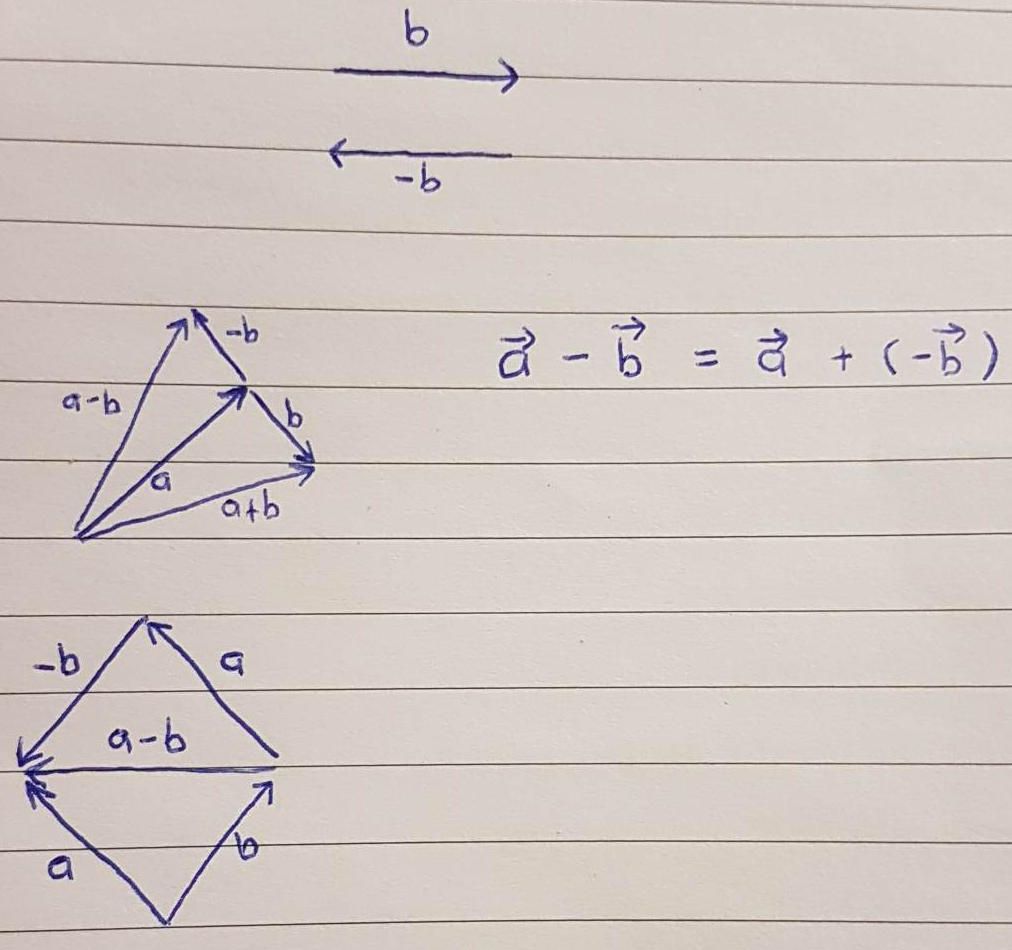 b
-b
-b
a⃗ - b⃗ = a⃗ + (-b⃗)
a-b
b
a
a+b
-b
a
a-b
a
b